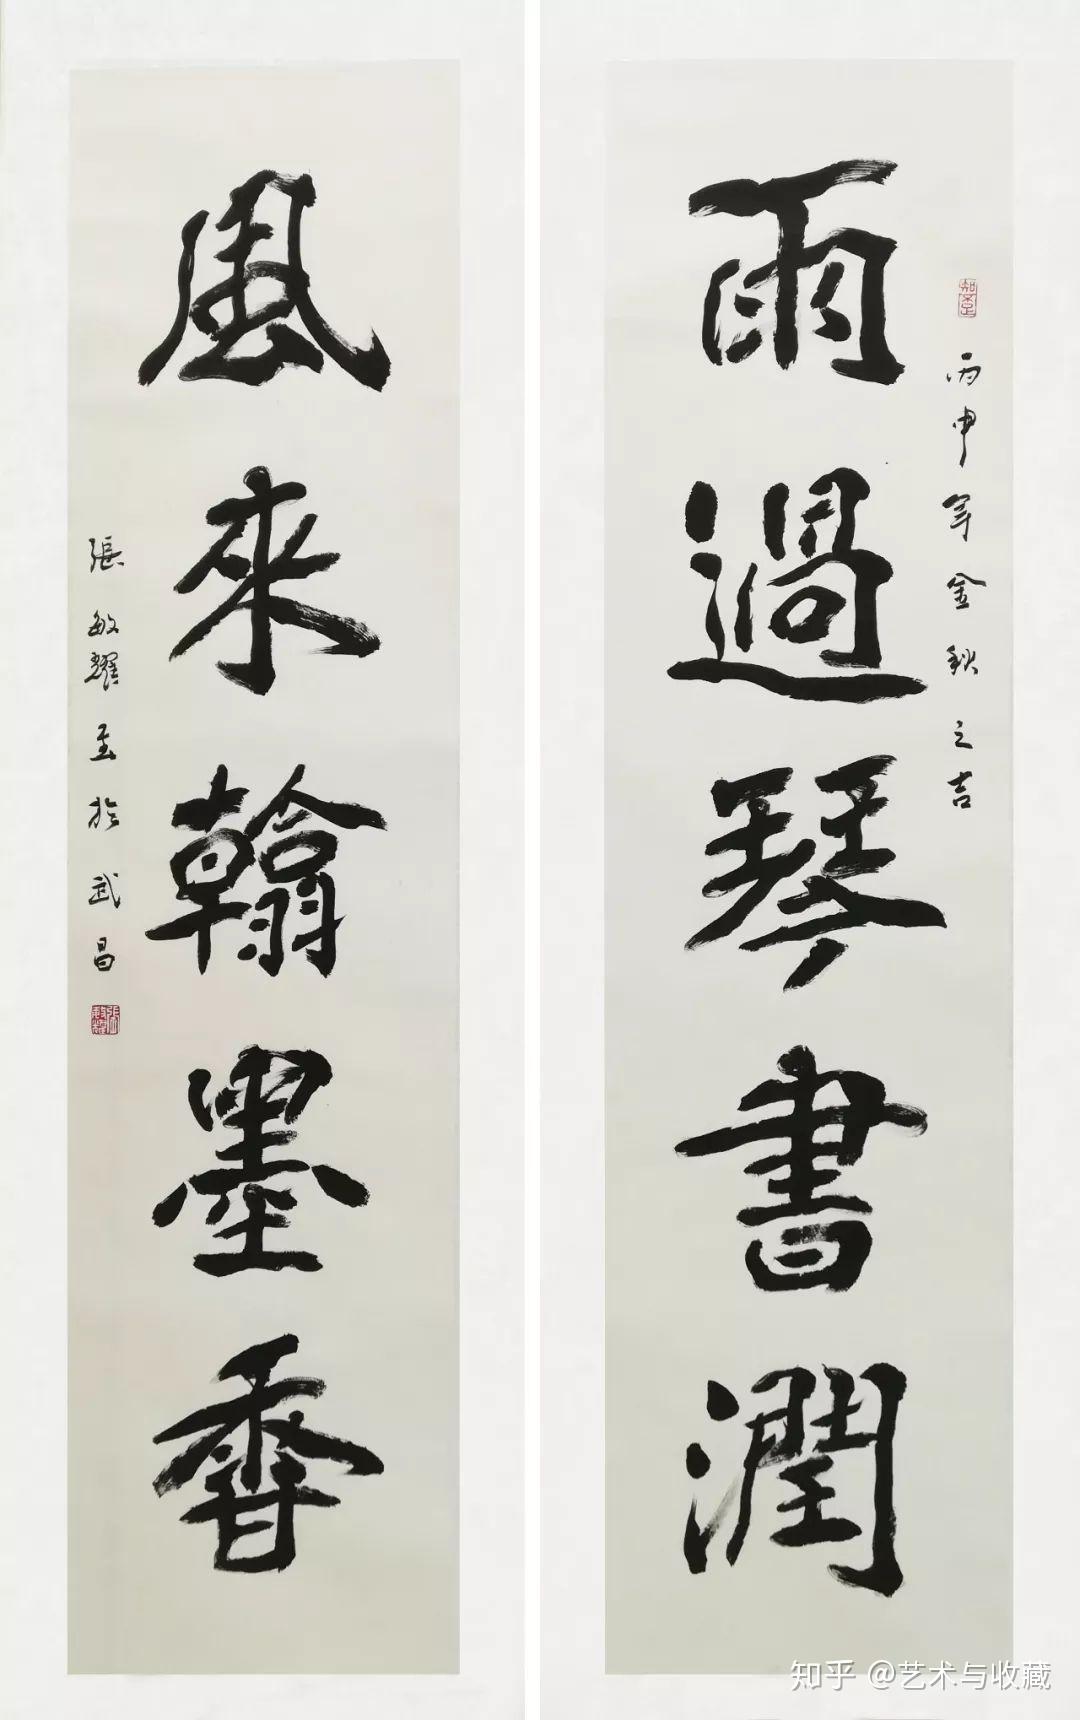 雨過琴書潤
丙申年金秋之吉
知不足
風來翰墨香
張敏耀書於武昌
張敏耀
知乎 @艺术与收藏